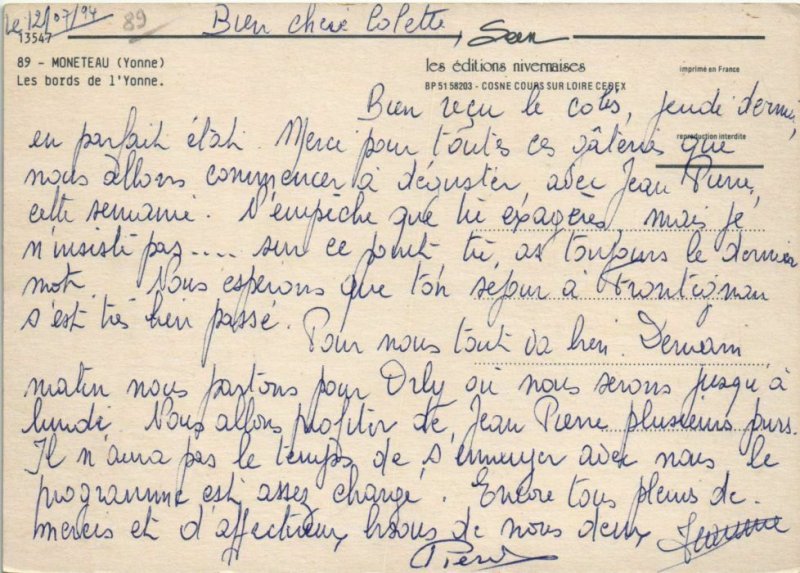 le 12/07/94 89 Bien chère Colette,
13547
89 - MONETEAU (Yonne)
Les bords de l'Yonne.
les éditions nivernaises
BP 51 58203 - COSNE COURS SUR LOIRE CEDEX
imprimé en France
reproduction interdite
Bien reçu le colis, jeudi dernier,
en parfait état. Merci pour toutes ces gâteries que
nous allons commencer à déguster, avec Jean Pierre,
cette semaine. N'empêche que tu exagères, mais je
n'insiste pas.... sur ce point tu as toujours le dernier
mot. Nous espérons que ton séjour à Frontignan
s'est très bien passé.
Pour nous tout va bien. Demain
matin nous partons pour Orly où nous serons jusqu'à
lundi. Nous allons profiter de Jean Pierre plusieurs jours.
Il n'aura pas le temps de s'ennuyer avec nous le
programme est assez chargé. Encore tous pleins de
mercis et d'affectueux bisous de nous deux Jeanne
Pierre